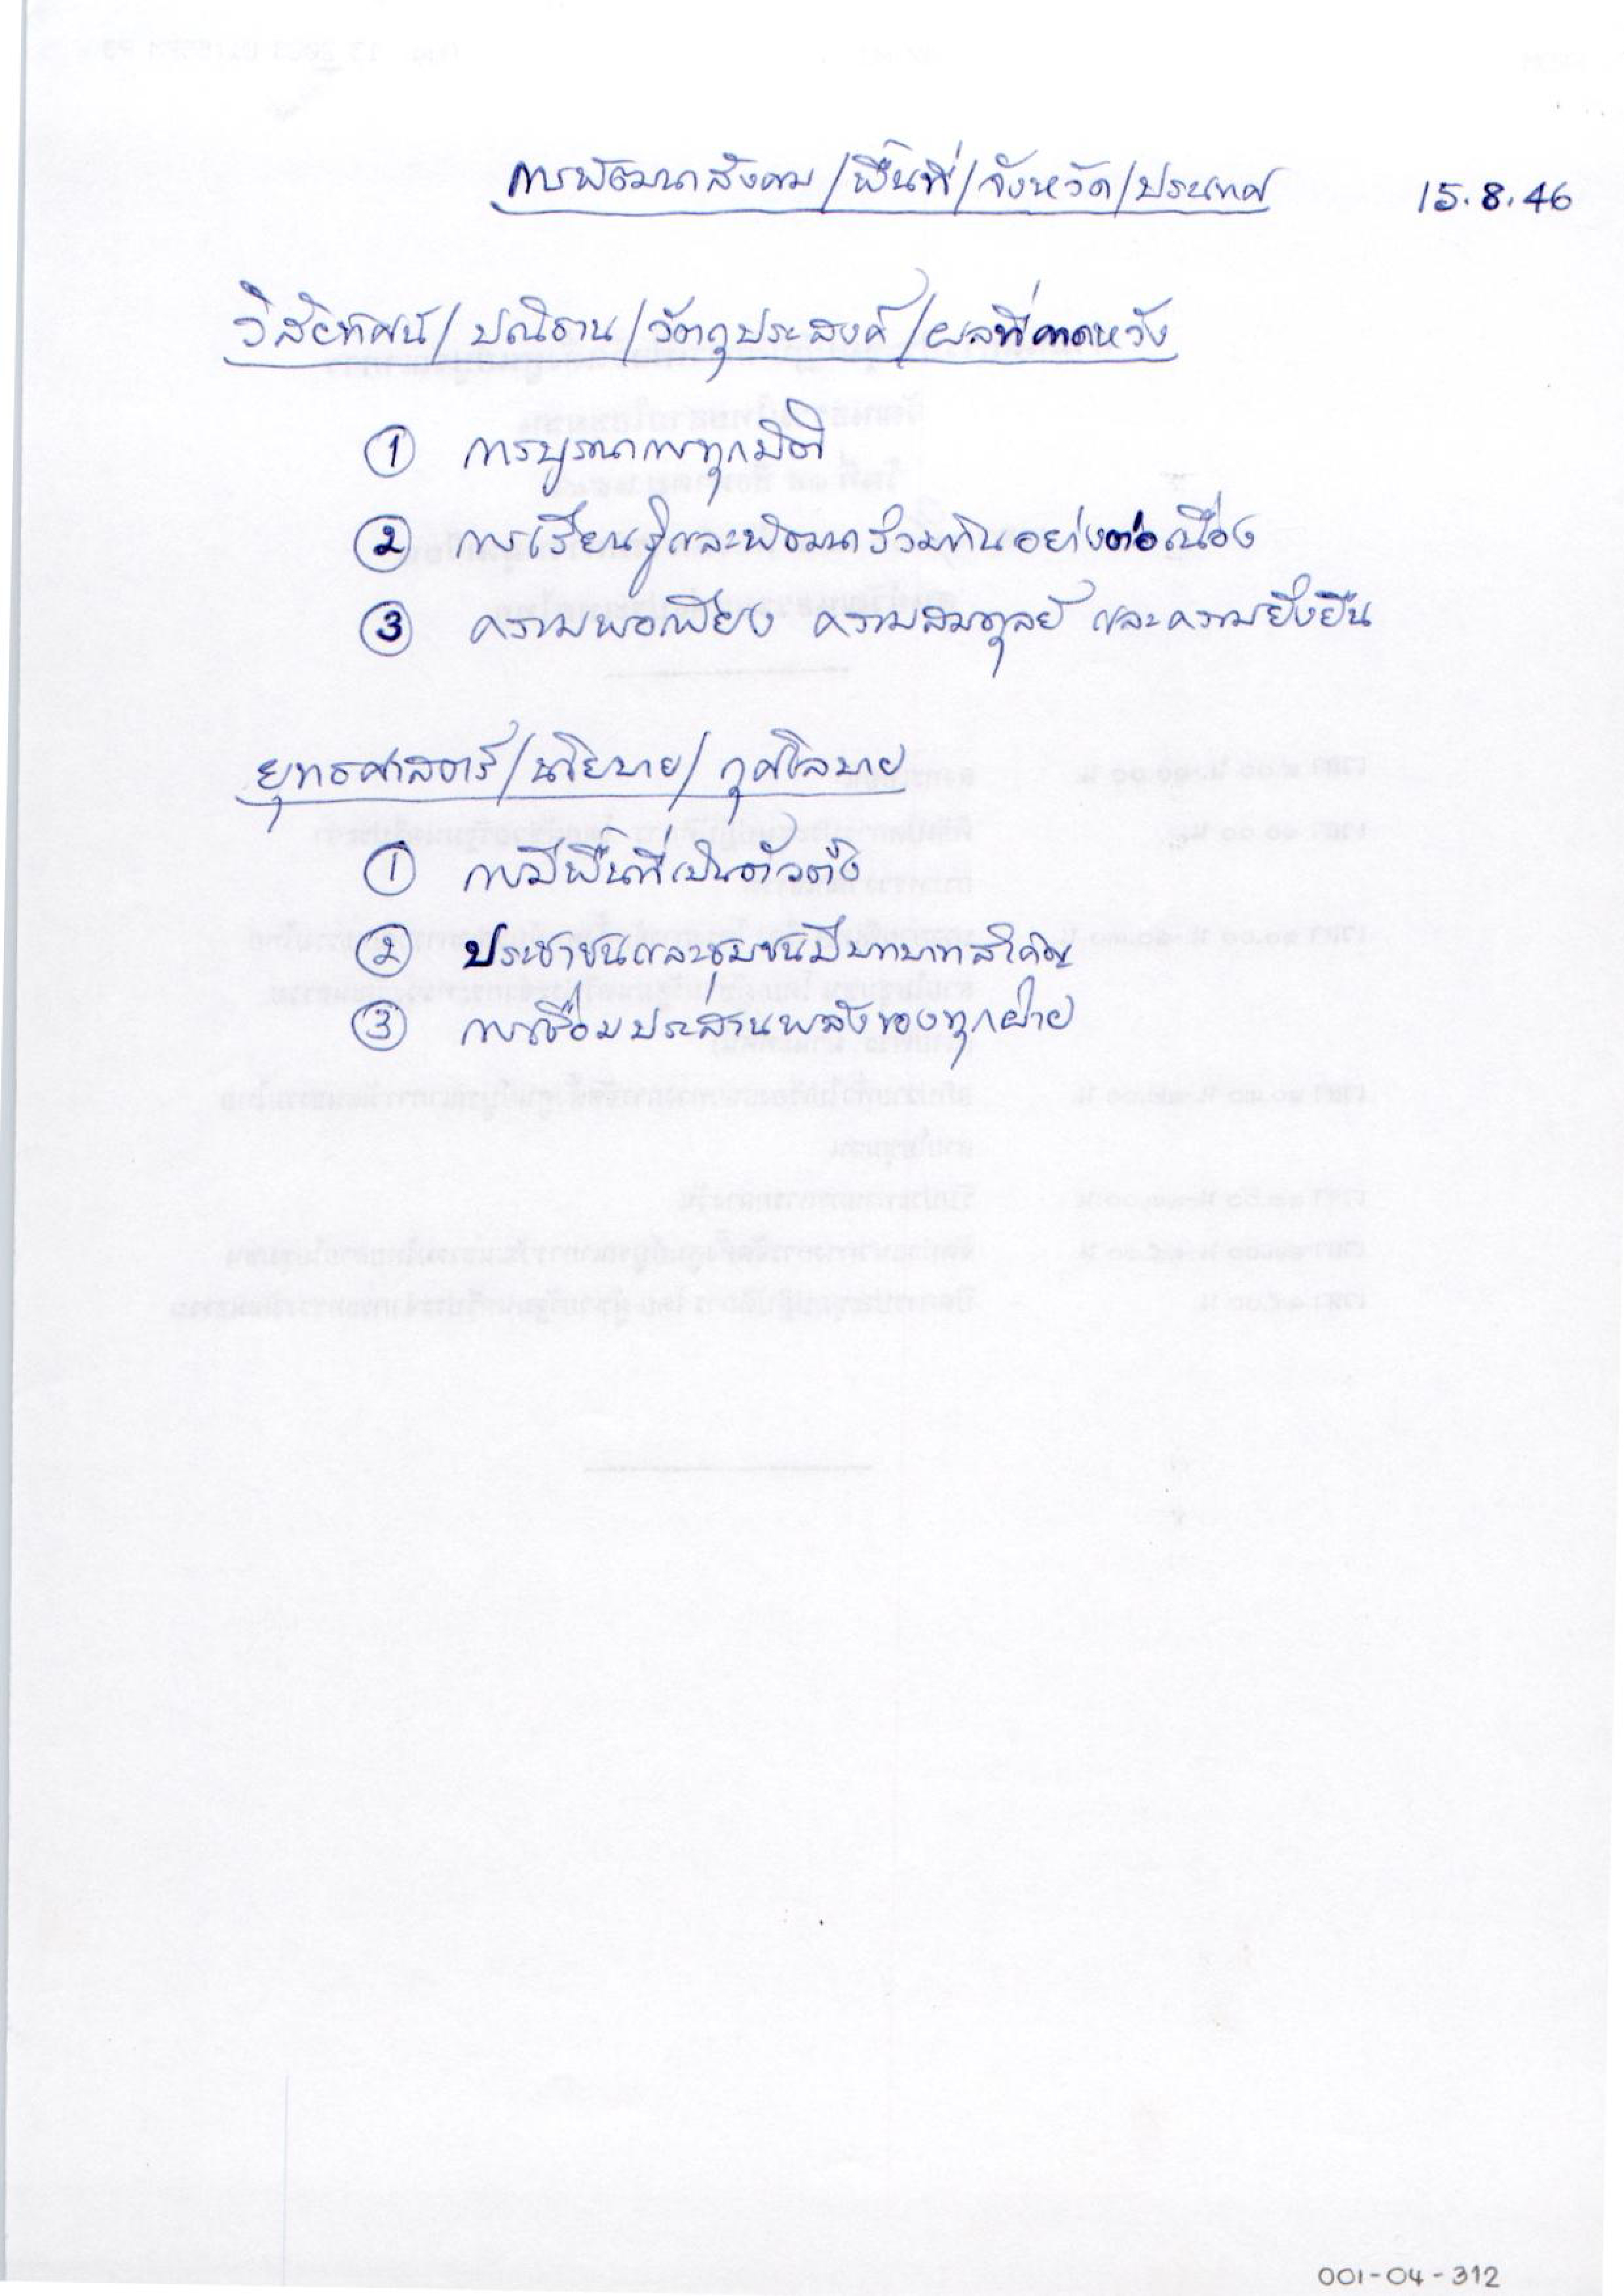 การพัฒนาสังคม/พื้นที่/จังหวัด/ประเทศ 15.8.46
วิสัยทัศน์/ปณิธาน/วัตถุประสงค์/ผลที่คาดหวัง
① การบูรณาการทุกมิติ
② การเรียนรู้และพัฒนาร่วมกันอย่างต่อเนื่อง
③ ความพอเพียง ความสมดุลย์ และความยั่งยืน
ยุทธศาสตร์/นโยบาย/กุศโลบาย
① การมีพื้นที่เป็นตัวตั้ง
② ประชาชนและชุมชนมีบทบาทสำคัญ
③ การเชื่อมประสานพลังของทุกฝ่าย
001-04-312